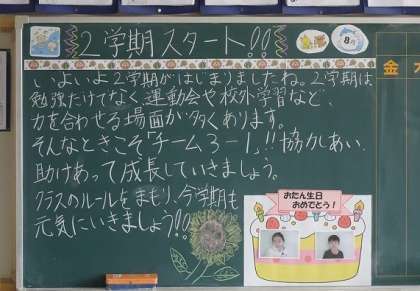 2学期スタート!!
8月
いよいよ2学期がはじまりましたね。2学期は
勉強だけでなく、運動会や校外学習など、
力を合わせる場面が多くあります。
そんなときこそ「チーム3-1」!!協力しあい、
助けあって成長していきましょう。
クラスのルールをまもり、今学期も
元気にいきましょう!!
おたん生日
おめでとう!
金